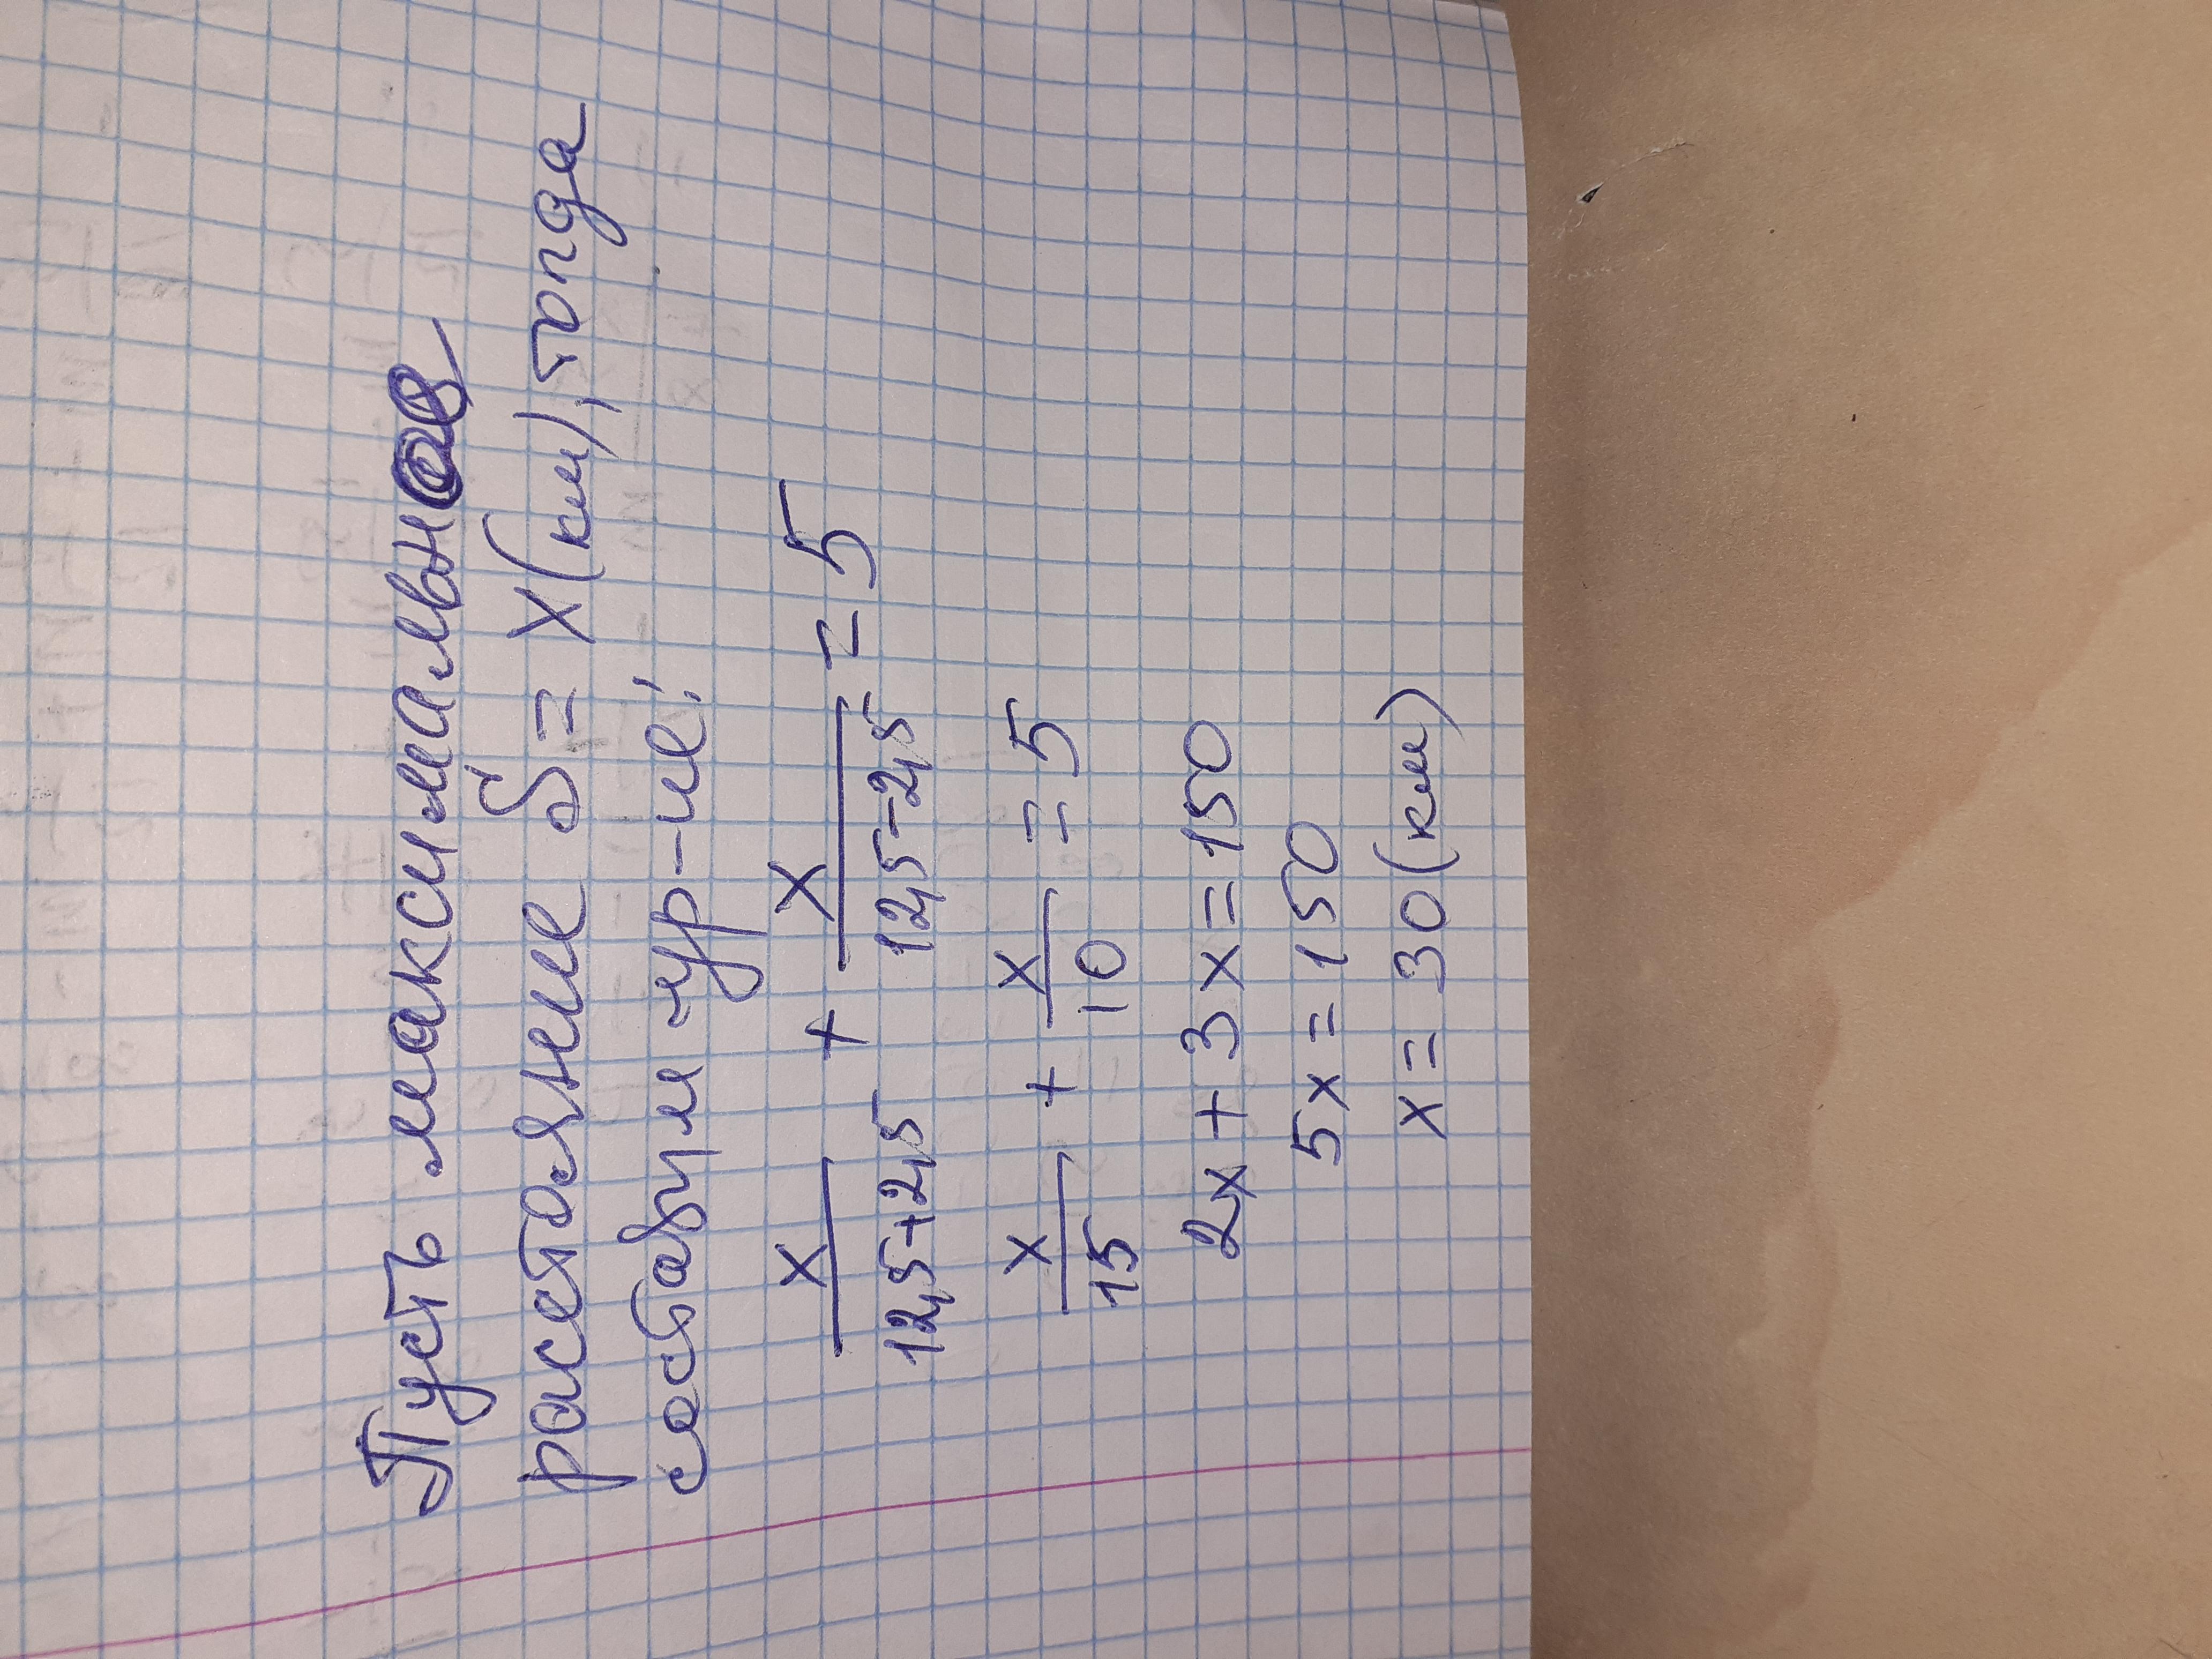 Пусть максимальное
расстояние S = x (км), тогда
составим ур-ие:
x/(12,5+2,5) + x/(12,5-2,5) = 5
x/15 + x/10 = 5
2x + 3x = 150
5x = 150
x = 30 (км)